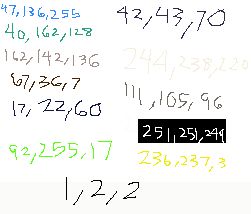 47,136,255
40,162,128
162,142,136
67,36,7
17,22,60
92,255,17
42,43,70
244,238,220
111,105,96
251,251,249
236,237,3
1,2,2